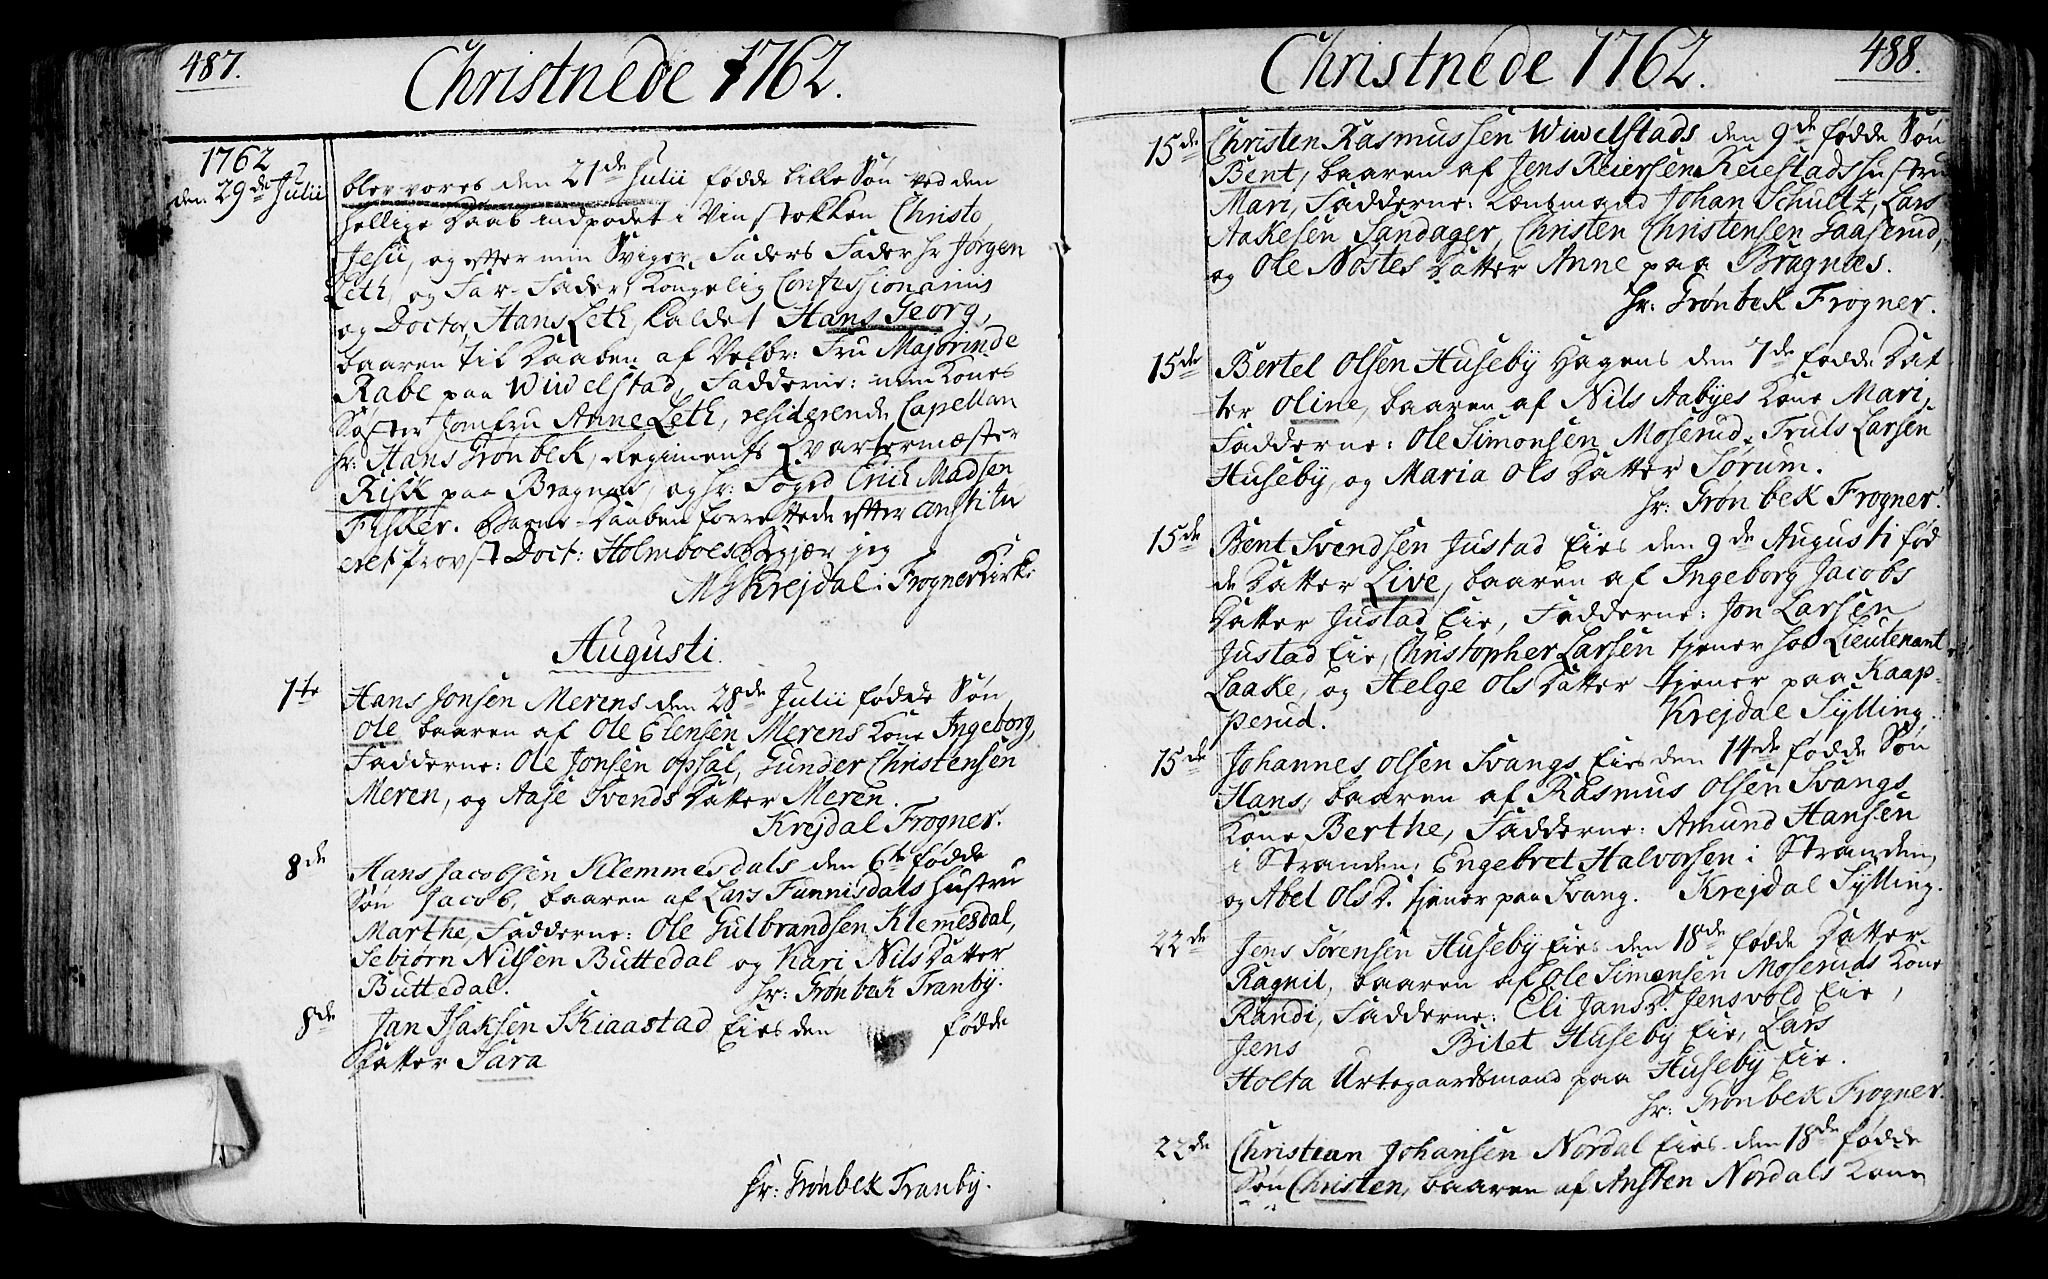 487.
Christnede 1762.
1762
den 29de Julii
blev vores den 21de Julii fødde lille Søn ved den
hellige Daab indpodet i Vinstokken Christo
Jesu, og efter min Sviger Faders Fader Hr Jørgen
Leth, og Far-Fader, Kongelig Confessionarius
og Doctor, Hans Leth, kaldet Hans Georg,
baaren til Daaben af Velbr: Fru Majorinde
Rabe paa Wiwelstad, Fadderne: min Kones
Søster Jomfru Anne Leth, residerende Capellan
Hr: Hans Grönbek, Regiments Qvartermæster
Risk paa Bragnæs, og Hr: Foged Erich Madsen
Fisker. Barne-Daaben forrettede efter constitu
eret Provst Doct: Holmboes Begjær jeg
Krejdal i Frogner Kirke
Augusti.
1te
Hans Jonsen Merens den 28de Julii fødde Søn
Ole baaren af Ole Elensen Merens Kone Ingeborg,
Fadderne: Ole Jonsen Opsal, Gunder Christensen
Meren, og Aase Svends Datter Meren.
Krejdal Frogner.
8de
Hans Jacobsen Klemmesdals den 6te fødde
Søn Jacob, baaren af Lars Funnisdals Hustru
Marthe, Fadderne: Ole Gulbrandsen Klemesdal,
Sebiørn Nilsen Buttedal og Kari Nils Datter
Buttedal. Hr: Grönbek Tranby.
8de
Jan Isaksen Skiaastad Eies den fødde
Datter Sara
Hr: Grönbek Tranby.
488.
Christnede 1762.
15de
Christen Rasmussen Wiwelstads den 9de fødde Søn
Bent, baaren af Jens Reiersen Reiestads Hustru
Mari, Fadderne: Lensmand Johan Schultz, Lars
Aakesen Sandager, Christen Christensen Gaaserud,
og Ole Nostes Datter Anne paa Bragnæs.
Hr: Grönbek Frogner.
15de
Bertel Olsen Huseby Hagens den 7de fødde Dat
ter Oline, baaren af Nils Aabyes Kone Mari,
Fadderne: Ole Simonsen Moserud, Truls Larsen
Huseby, og Maria Ols Datter Sørum.
Hr: Grön bek Frogner.
15de
Bent Svendsen Justad Eies den 9de Augusti fød
de Datter Live, baaren af Ingeborg Jacobs
Datter Justad Eie, Fadderne: Jon Larsen
Justad Eie, Christopher Larsen tjener hos Lieutenant
Laake, og Helge Ols Datter tjener paa Kaap-
perud. Krejdal Sylling.
15de
Johannes Olsen Svangs Eies den 14de fødde Søn
Hans, baaren af Rasmus Olsen Svangs
Kone Berthe, Fadderne: Amund Hansen
i Stranden, Engebret Halvorsen i Stranden,
og Abel Ols D. tjener paa Svang. Krejdal Sylling.
22de
Jens Sørensen Huseby Eies den 18de fødde Datter
Ragnil, baaren af Ole Simonsen Moseruds Kone
Randi, Fadderne: Eli Jans D. Jensvold Eie,
Jens Bilet Huseby Eie, Lars
Holta Urtegaardsmand paa Huseby Eie.
Hr: Grönbek Frogner.
22de
Christian Johansen Nordal Eies den 18de fødde
Søn Christen, baaren af Ansten Nordals Kone